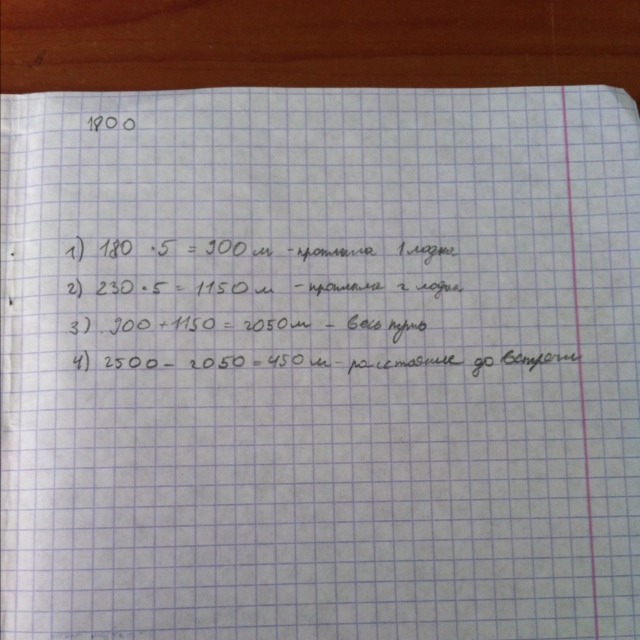 1800
1) 180 · 5 = 900 м - проплыла 1 лодка
2) 230 · 5 = 1150 м - проплыла 2 лодка
3) 900 + 1150 = 2050 м - весь путь
4) 2500 - 2050 = 450 м - расстояние до встречи